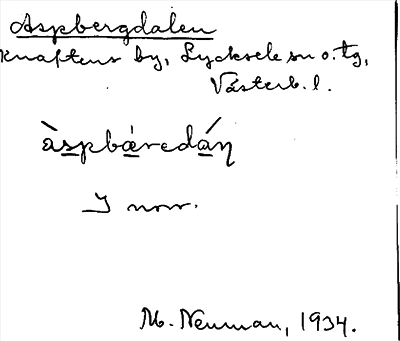 Aspbergdalen
Knaftens by, Lycksele sn o. tg,
Västerb. l.
àspbæredáņ
I nov.
M. Neuman, 1934.